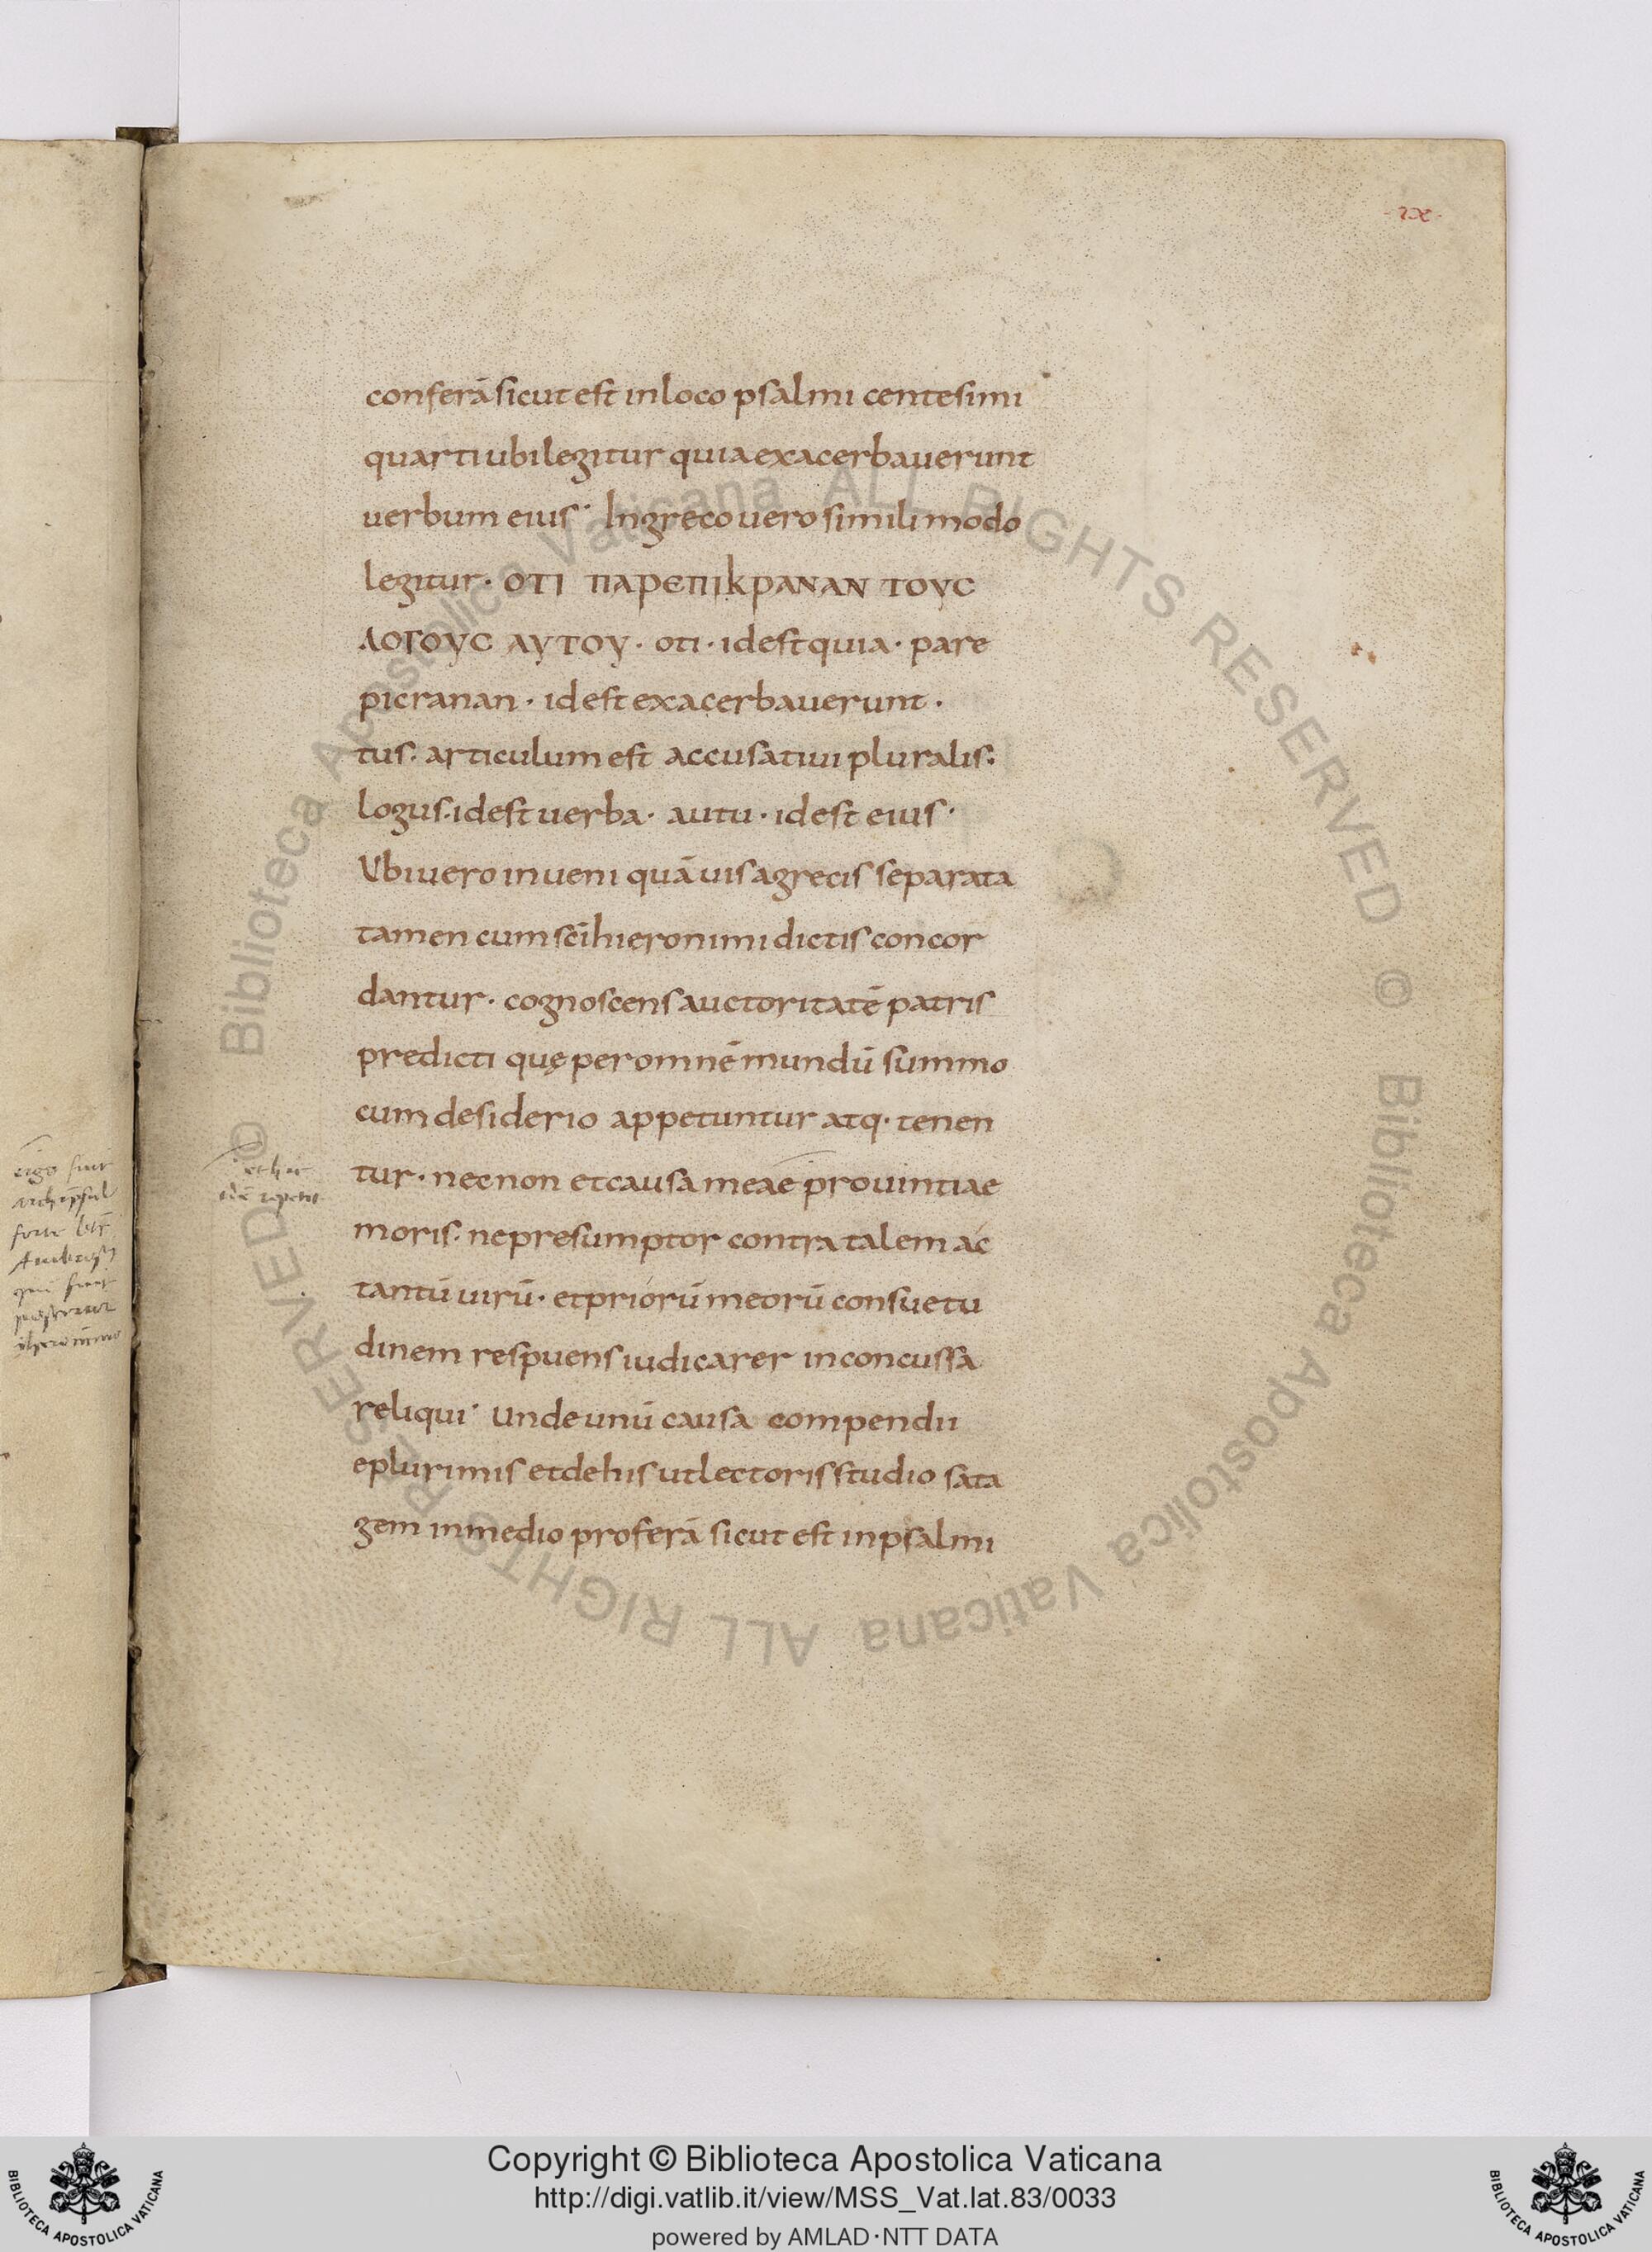 conferā sicut est in loco psalmi centesimi
quarti ubi legitur quia exacerbauerunt
uerbum eius· In greco uero simili modo
legitur· ΟΤΙ ΠΑΡΕΠΙΚΡΑΝΑΝ ΤΟΥC
ΛΟΓΟΥC ΑΥΤΟΥ· oti· id est quia· pare
picranan· id est exacerbauerunt·
tus· articulum est accusatiui pluralis·
logus· id est uerba· autu· id est eius·
Vbi uero inueni quāuis a grecis separata
tamen cum sc̄i hieronimi dictis concor
dantur· cognoscens auctoritatē patris
predicti quę per omnē mundū summo
cum desiderio appetuntur atq· tenen
tur· nec non et causa meae prouintiae
moris· ne presumptor contra talem ac
tantū uirū· et priorū meorū consuetu
dinem respuens iudicarer inconcussa
reliqui· unde unū causa compendii
e plurimis et de his ut lectoris studio sata
gem in medio proferā sicut est in psalmi
Biblioteca Apostolica Vaticana ALL RIGHTS RESERVED ©
Biblioteca Apostolica Vaticana ALL RIGHTS RESERVED ©
Copyright © Biblioteca Apostolica Vaticana
http://digi.vatlib.it/view/MSS_Vat.lat.83/0033
powered by AMLAD·NTT DATA
BIBLIOTECA APOSTOLICA VATICANA
BIBLIOTECA APOSTOLICA VATICANA